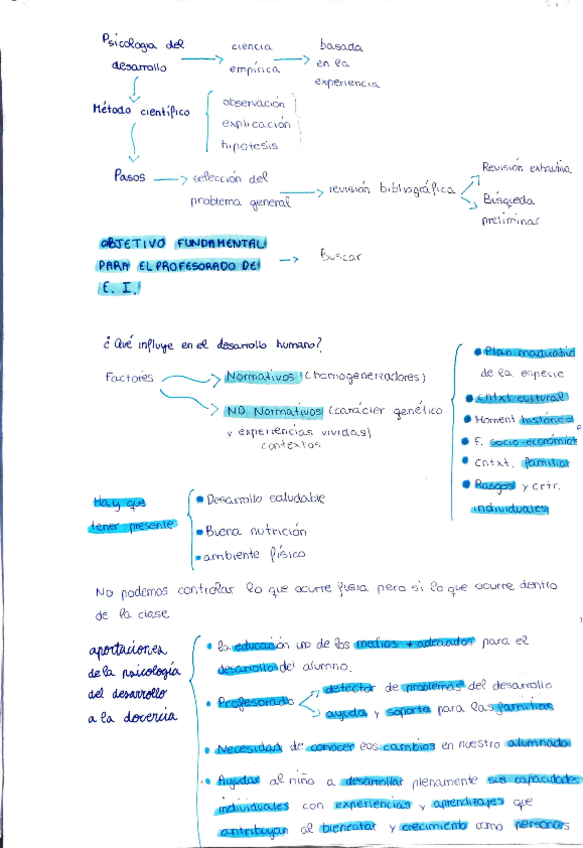 Psicología del → ciencia → basada
desarrollo empírica en la
experiencia
Método científico observación
explicación
hipotesis
Pasos → selección del → revisión bibliográfica
problema general
Revisión exhaustiva
Búsqueda
preliminar
OBJETIVO FUNDAMENTAL
PARA EL PROFESORADO DE → Buscar
E. I.
¿Qué influye en el desarrollo humano?
Factores → Normativos (homogeneizadores)
→ NO Normativos (carácter genético
y experiencias vividas)
contextos
• Plan madurativo
de la especie
• Cntxt cultural
• Moment histórico
• F. socio-económico
• Cntxt. familiar
• Rasgos y crtr.
individuales
Hay que
tener presente
• Desarrollo saludable
• Buena nutrición
• ambiente físico
No podemos controlar lo que ocurre fuera pero si lo que ocurre dentro
de la clase
aportaciones
de la psicología
del desarrollo
a la docencia
• la educación uno de los medios + adecuados para el
desarrollo del alumno.
• Profesorado → detector de problemas del desarrollo
→ ayuda y soporte para las familias
• Necesidad de conocer los cambios en nuestro alumnado
• Ayudar al niño a desarrollar plenamente sus capacidades
individuales con experiencias y aprendizajes que
contribuyan al bienestar y crecimiento como personas